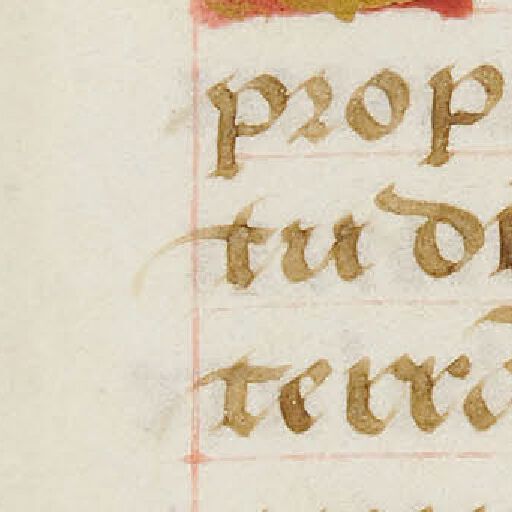 prop
tu d
terra